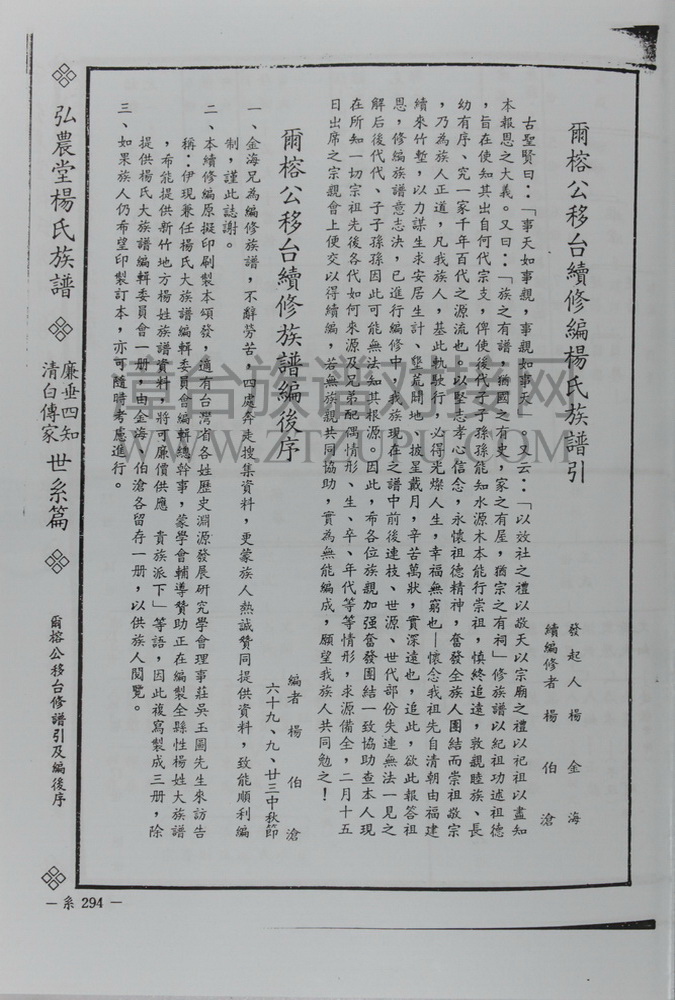 爾榕公移台續修編楊氏族譜引
發起人　楊　金　海
續編修者　楊　伯　滄
古聖賢曰：「事天如事親，事親如事天」。又云：「以效社之禮以敬天以宗廟之禮以祀祖以盡知
本報恩之大義。又曰：「族之有譜，猶國之有史，家之有屋，猶宗之有祠」修族譜以紀祖功述祖德
，旨在使知其出自何代宗支，俾使後代子子孫孫能知水源木本能行崇祖，慎終追遠，敦親睦族、長
幼有序、究一家千年百代之源流也。以堅志孝心信念，永懷祖德精神，奮發全族人團結而崇祖敬宗
，乃為族人正道，凡我族人，基此軌駛行，必得光燦人生，幸福無窮也—懷念我祖先自清朝由福建
續來竹塹，以力謀生求安居生計、墾荒闢地，披星戴月，辛苦萬狀，實深遠也，追此，欲此報答祖
恩，修編族譜意志決，已進行編修中，我族現在之譜中前後連枝、世源、世代部份失連無法一見之
解后後代代、子子孫孫因此可能無法知其根源，因此，希各位族親加强奮發團結一致協助查本人現
在所知一切宗祖先後各代如何來源及兄弟配偶情形、生、卒、年代等等情形，求源備全，二月十五
日出席之宗親會上便交以得續編，若無族親共同協助，實為無能編成，願望我族人共同勉之！
爾榕公移台續修族譜編後序
編者　楊　伯　滄
六十九、九、廿三中秋節
一、金海兄為編修族譜，不辭勞苦，四處奔走搜集資料，更蒙族人熱誠贊同提供資料，致能順利編
制，謹此誌謝。
二、本續修編原擬印刷製本頒發，適有台灣省各姓歷史淵源發展研究學會理事莊吳玉圖先生來訪告
稱：伊現兼任楊氏大族譜編輯委員會編輯總幹事，蒙學會輔導贊助正在編製全縣性楊姓大族譜
，希能提供新竹地方楊姓族譜資料，將可廉價供應　貴族派下」等語，因此複寫製成三册，除
提供楊氏大族譜編輯委員會一册，由金海、伯滄各留存一册，以供族人閱覽。
三、如果族人仍希望印製訂本，亦可隨時考慮進行。
弘農堂楊氏族譜
廉垂四知
清白傳家
世系篇
爾榕公移台修譜引及編後序
— 系 294 —
草台族谱对接网
WWW.ZTZUPU.COM